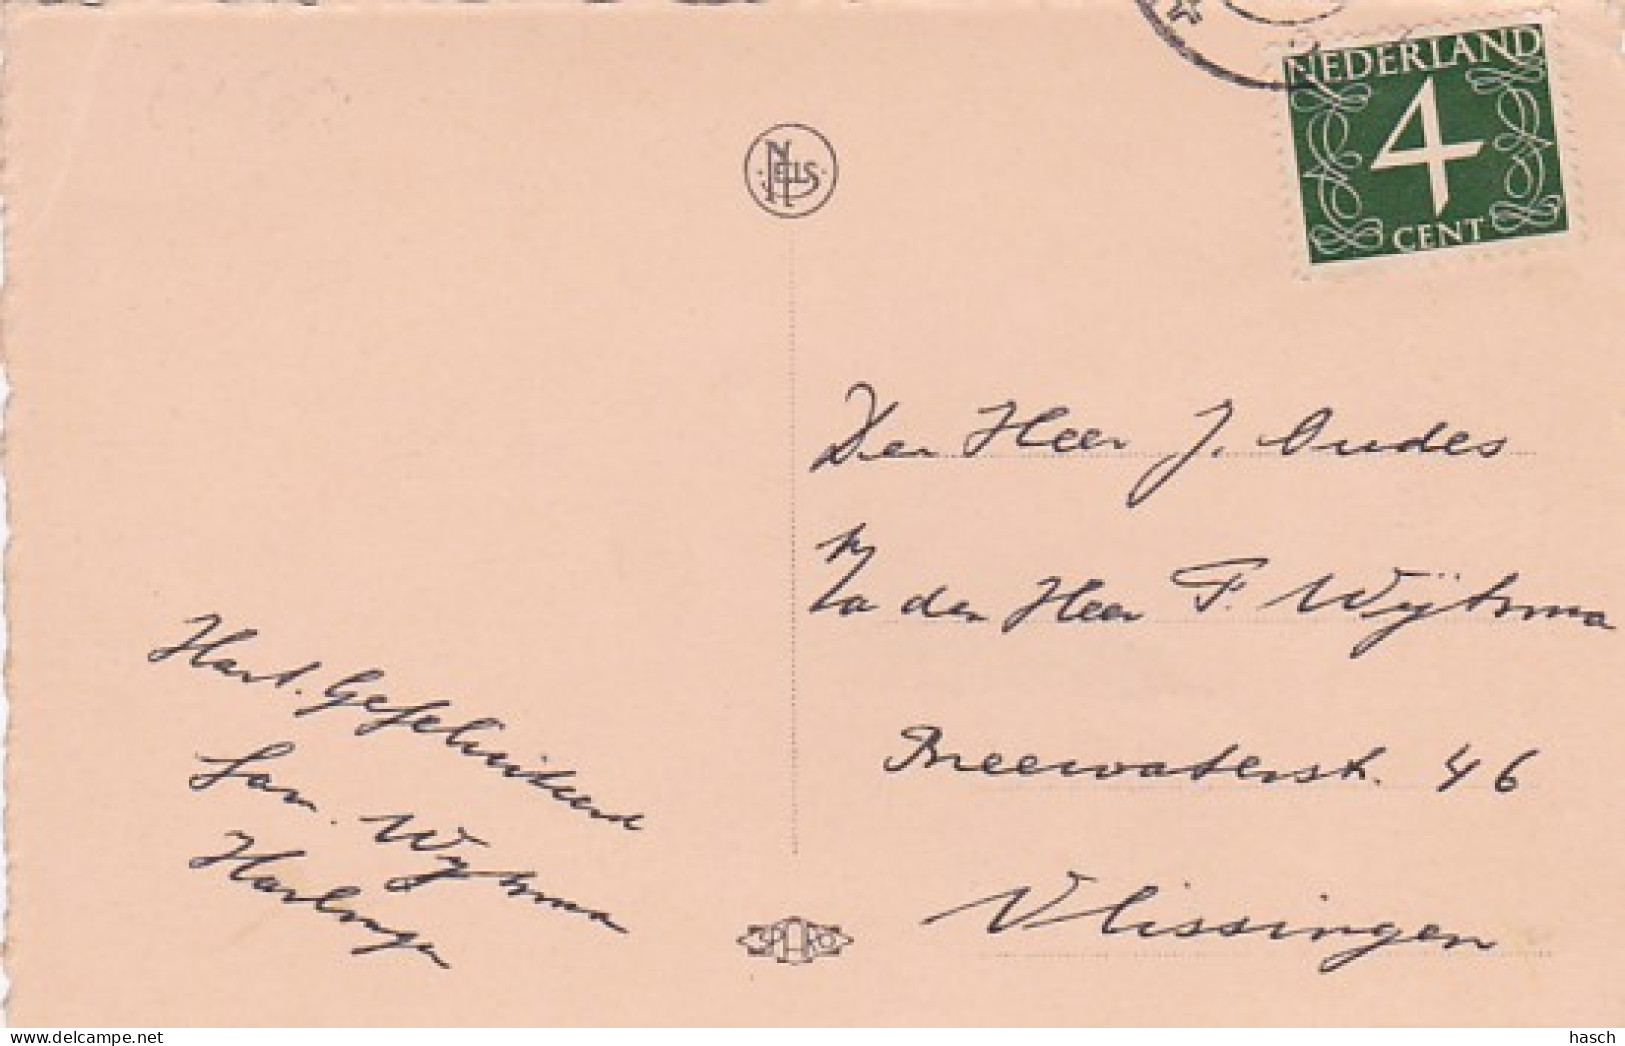 NEDERLAND
4
CENT
NELS
Den Heer J. Oudes
p/a den Heer P. Wÿtsma
Breewaterstr. 46
Vlissingen
Hart. Gefeliciteerd
Fam. Wytsma
Harlingen
SPHRO
www.delcampe.net
hasch